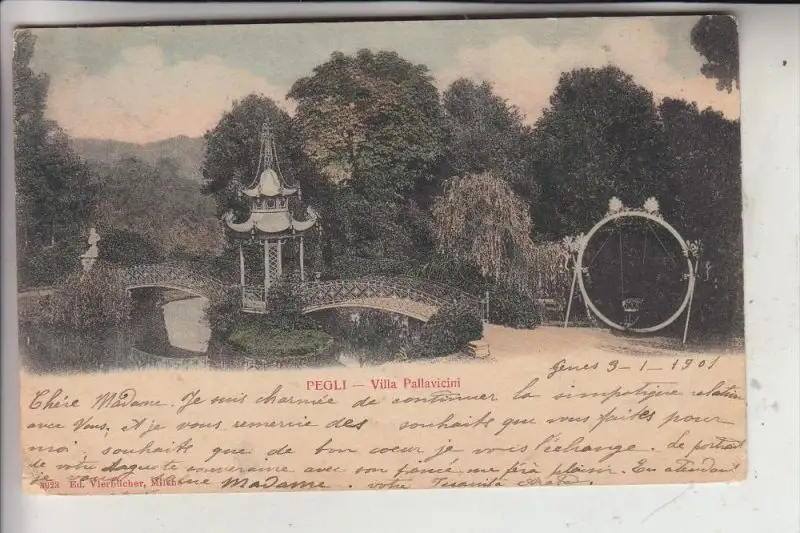 PEGLI — Villa Pallavicini
Genes 9-1-1901
Chére Madame. Je suis charmée de continuer la simpatique relation
avec Vous, et je vous remercie des souhaits que vous faites pour
moi, souhaits que de bon coeur je vous l'échange. Le portrait
de votre souveraine avec son fiancé me fera plaisir. En attendant
je Madame. votre
8923 Ed. Vierbücher, Milano